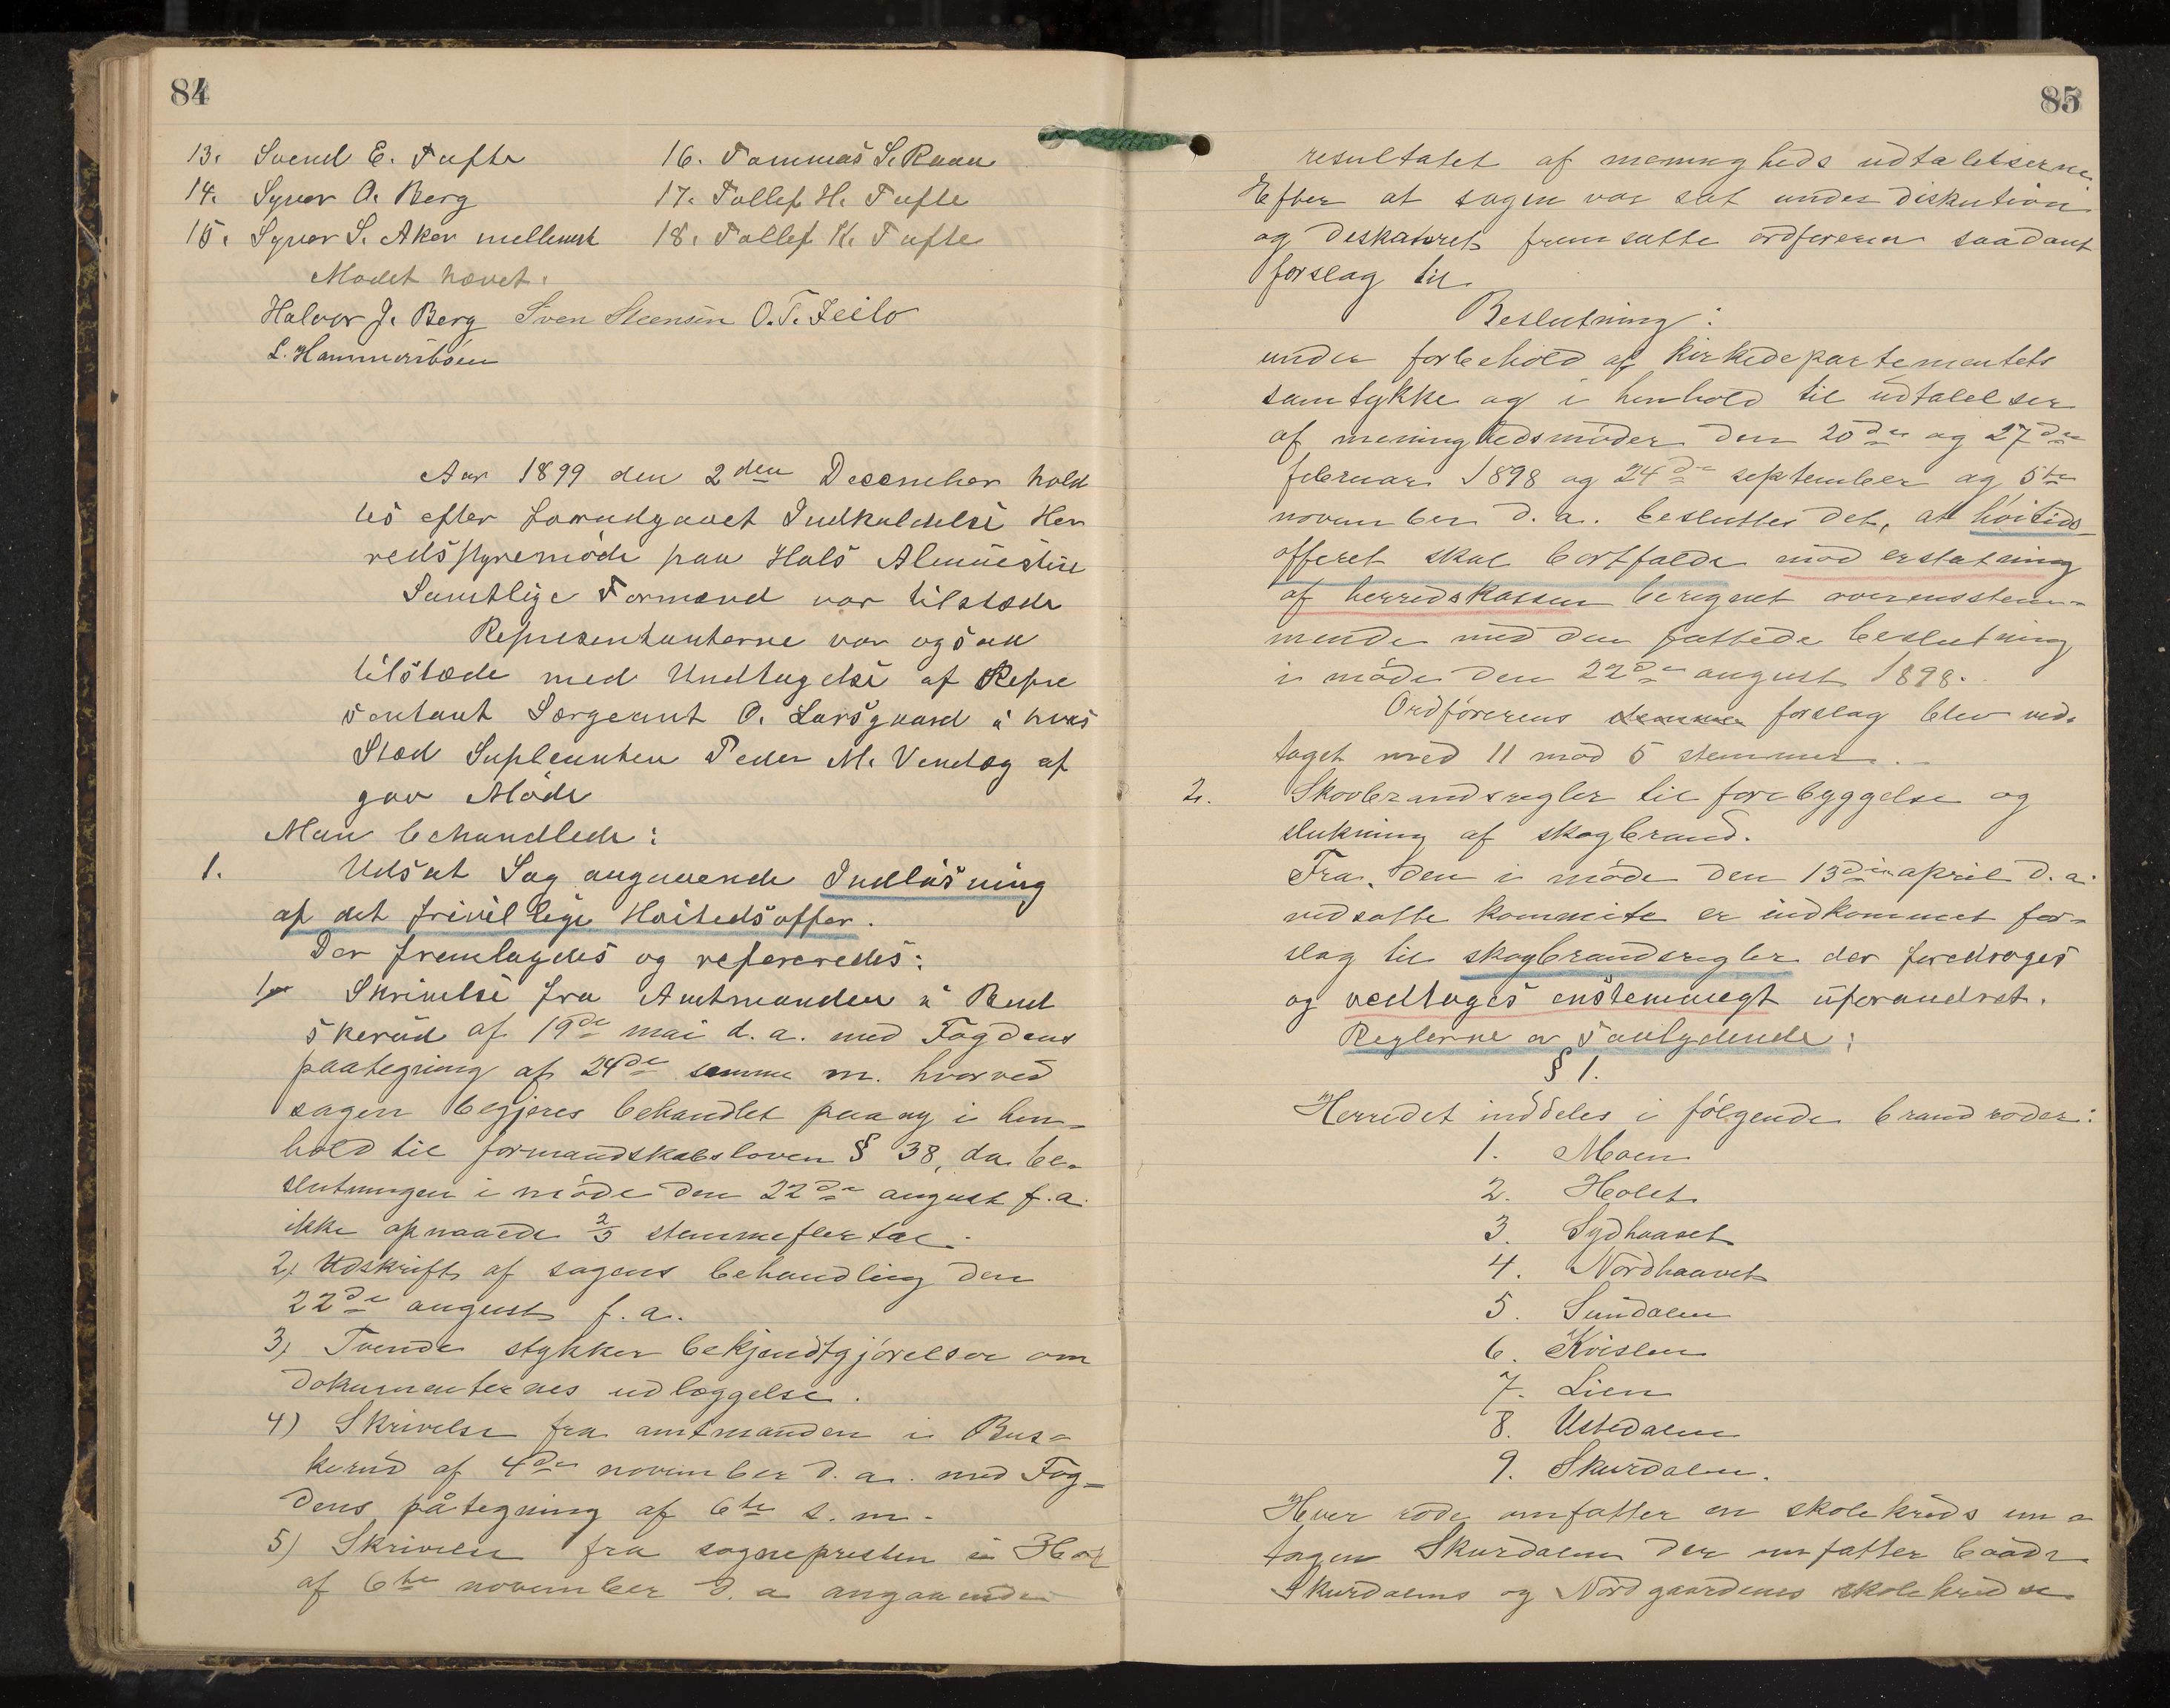 84
13. Svend E. Tufte
14. Syver O. Berg
15. Syver S. Aker mellemst
16. Tommas S. Raaa
17. Tollef H. Tufte
18. Tollef K. Tufte
Mødet hævet.
Halvor J. Berg Sven Steensen O. T. Feilo
L. Hammersbøen
Aar 1899 den 2den December hold
tes efter forudgaaet Indkaldelse Her
redsstyremöde paa Hols Almuestue
Samtlige Formænd var tilstæde
Representanterne var ogsaa
tilstæde med Undtagelse af Repre
sentant Sergeant O. Larsgaard i hvis
Stæd Supleanten Peder M. Vendog af
gav Möde
Man behandlede:
1. Udsat Sag angaaende Indlösning
af det frivillige Høitedsoffer.
Der fremlagdes og refereredes:
1) Skrivelse fra Amtmanden i Bud
skerud af 19de mai d. a. med Fogdens
paategning af 24de samme m. hvorved
sagen begjeres behandlet paa ny i hen-
hold til formandskabsloven § 38, da be-
slutningen i möde den 22de august f. a.
ikke opnaaede 2/3 stemmeflertal.
2) Udskrift af sagens behandling den
22de august f. a.
3) Tvende stykker bekjendtgjörelser om
dokumenternes udlæggelse.
4) Skrivelse fra amtmanden i Bus-
kerud af 4de november d. a. med Fog-
dens påtegning af 6te s. m.
5) Skrivelse fra sognepresten i Hol
af 6te november d. a angaaende
85
resultatet af menigheds udtalelserne.
Efter at sagen var sat under diskution
og deskateret fremsatte ordføreren saadant
forslag til
Beslutning:
under forbehold af kirkedepartementets
samtykke og i henhold til udtalelser
af menighedsmöder den 20de og 27de
februar 1898 og 24de september og 5te
november d. a. besluttes det, at höitids-
offeret skal bortfalde mod erstatning
af herredskassen beregnet overensstem-
mende med den fattede beslutning
i möde den 22de august 1898.
Ordförerens forslag blev ved-
taget med 11 mod 5 stemmer.
2. Skovbrandsregler til forebyggelse og
slukning af skogbrand.
Fra den i möde den 13de april d. a.
nedsatte kommite er indkommet for-
slag til skogbrandsregler der foredroges
og vedtages enstemmegt uforandret.
Reglerne er saalydende:
§ 1.
Herredet inddeles i fölgende brandroder:
1. Moen
2. Holet
3. Sydhaavet
4. Nordhaavet
5. Sundalen
6. Kvislen
7. Lien
8. Ustedalen
9. Skurdalen.
Hver rode omfatter en skolekreds und-
tagen Skurdalen der omfatter baade
Skurdalens og Nordgaardenes skolekredse